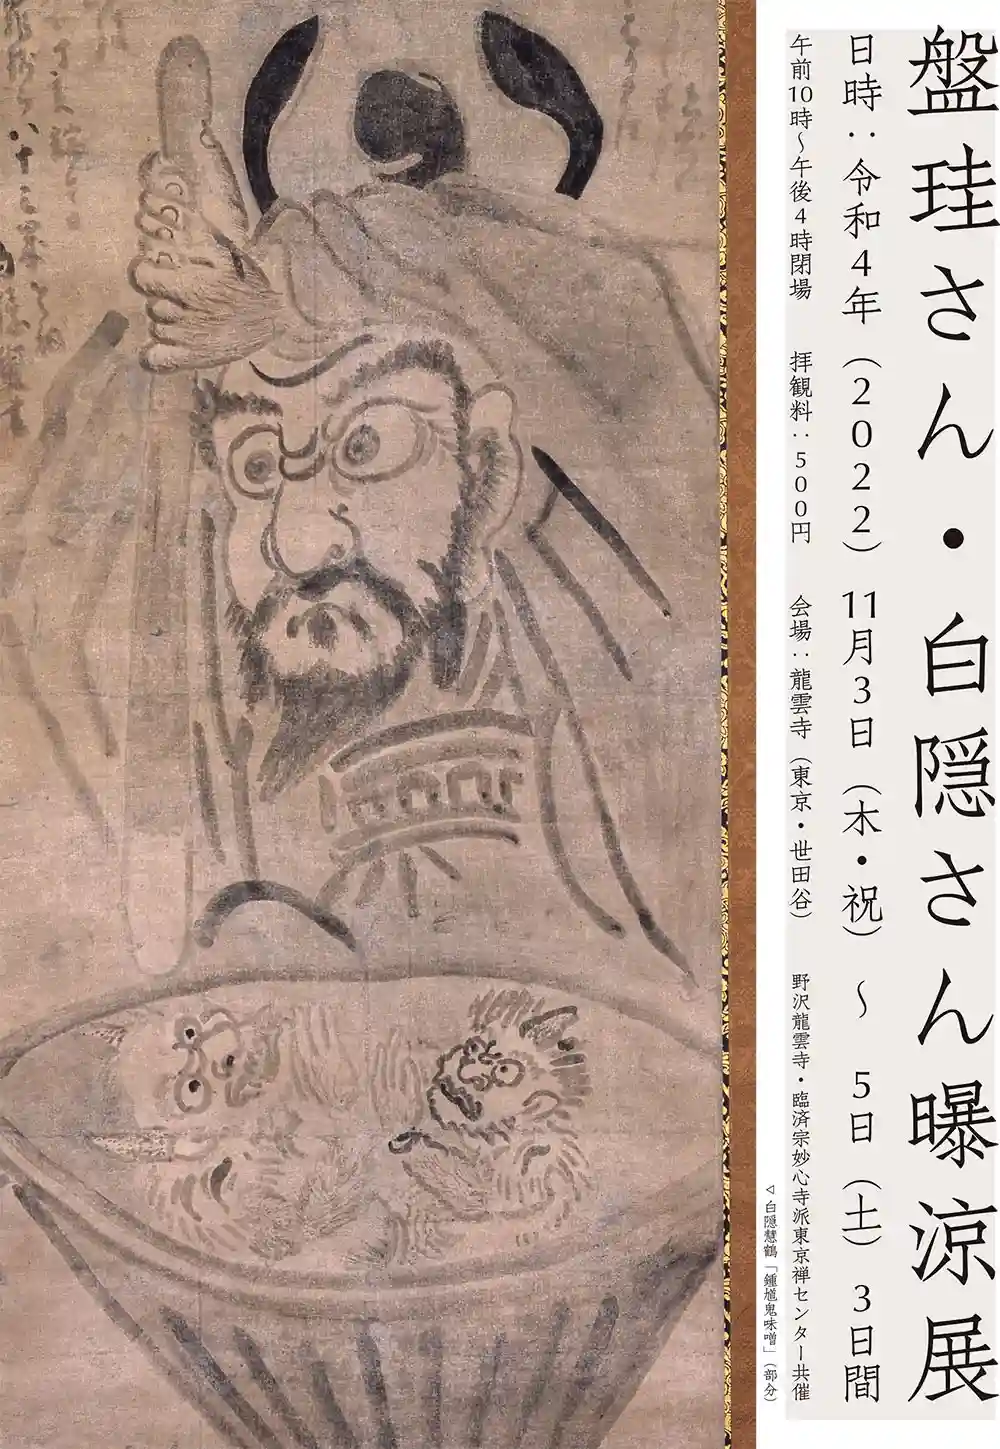 盤珪さん・白隠さん曝涼展
日時：令和4年（2022）11月3日（木・祝）～　5日（土）　3日間
午前10時～午後4時閉場　拝観料：500円　会場：龍雲寺（東京・世田谷）　野沢龍雲寺・臨済宗妙心寺派東京禅センター共催
◁白隠慧鶴「鍾馗鬼味噌」（部分）